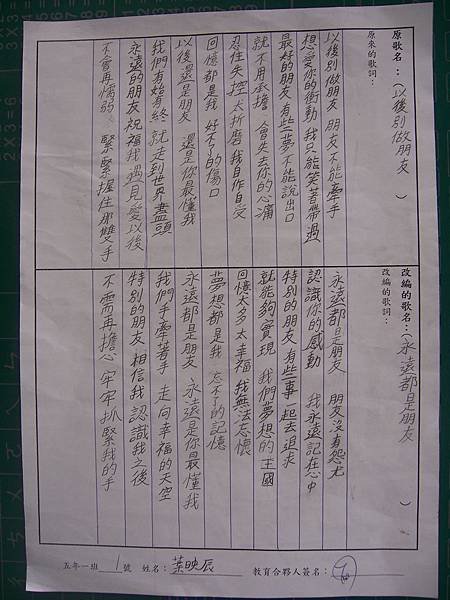 原歌名：（以後別做朋友）
原來的歌詞：
以後別做朋友 朋友不能牽手
想愛你的衝動 我只能笑著帶過
最好的朋友 有些夢不能說出口
就不用承擔 會失去你的心痛
忍住失控 太折磨 我自作自受
回憶都是我 好不了的傷口
以後還是朋友 還是你最懂我
我們有始有終 就走到世界盡頭
永遠的朋友 祝福我遇見愛以後
不會再懦弱 緊緊握住那雙手
改編的歌名：（永遠都是朋友）
改編的歌詞：
永遠都是朋友 朋友沒有怨尤
認識你的感動 我永遠記在心中
特別的朋友 有些事一起去追求
就能夠實現 我們夢想的王國
回憶太多 太幸福 我無法忘懷
夢想都是我 忘不了的記憶
永遠都是朋友 永遠是你最懂我
我們手牽著手 走向幸福的天空
特別的朋友 相信我認識我之後
不需再擔心 牢牢抓緊我的手
五年一班 1 號 姓名：葉映辰
教育合夥人簽名：
2X3=6